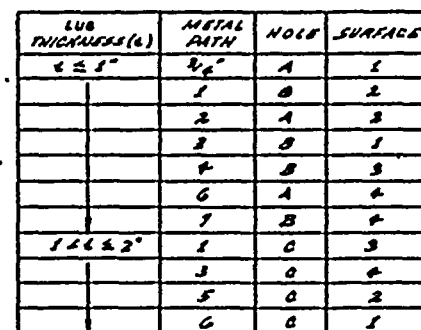 LUG THICKNESS(t) METAL PATH HOLE SURFACE
t ≤ 1" 3/4" A 1
1 B 2
2 A
B 1
4 B 3
6 A 4
7 B 4
1 < t ≤ 2" 1 C 3
3 C 4
5 C 2
6 C 1